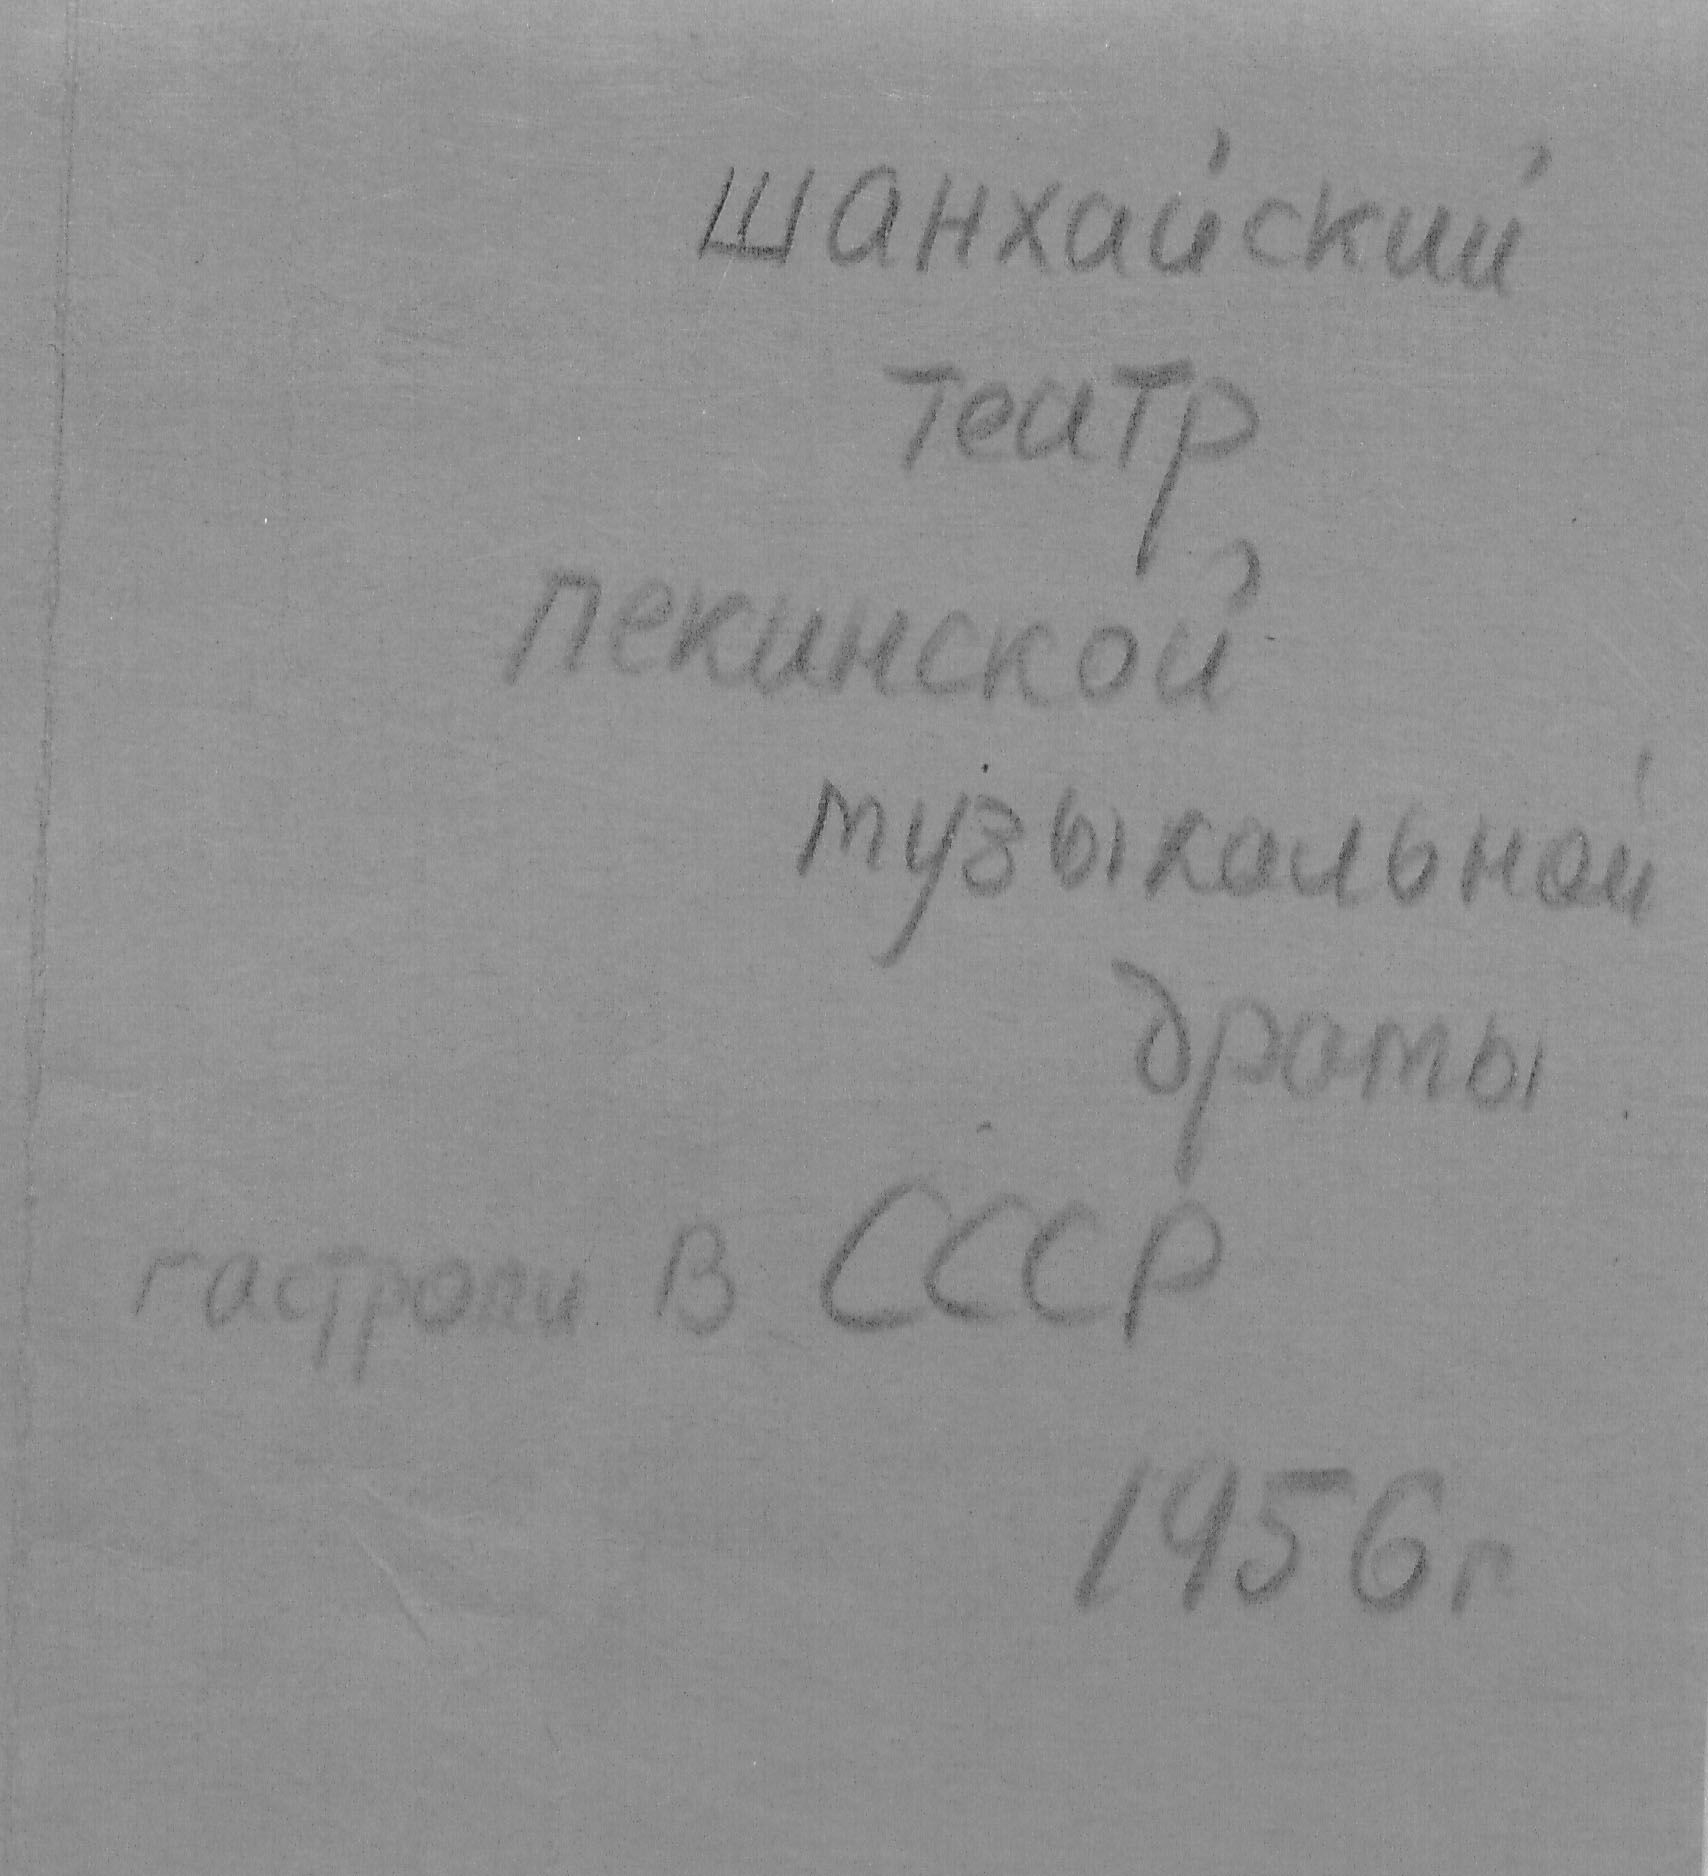 шанхайский
театр
пекинской
музыкальной
драмы
гастроли в СССР
1956г